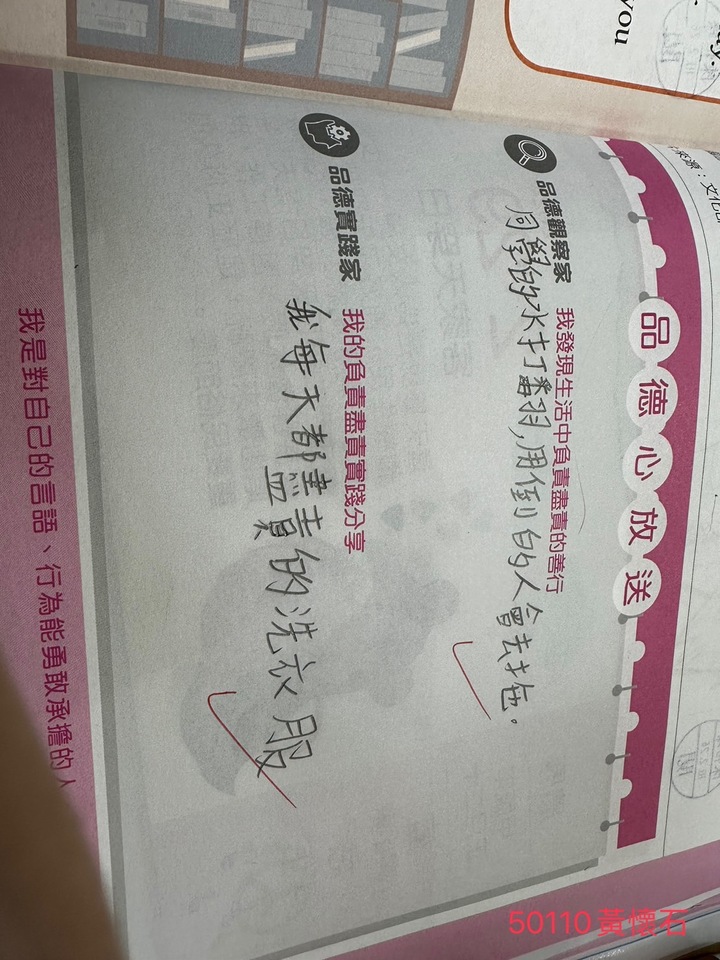 you
來源：文化
品德心放送
品德觀察家 我發現生活中負責盡責的善行
同學的水打翻,用倒的人會去拖。
品德實踐家 我的負責盡責實踐分享
我每天都盡責的洗衣服
我是對自己的言語、行為能勇敢承擔的人
50110 黃懷石